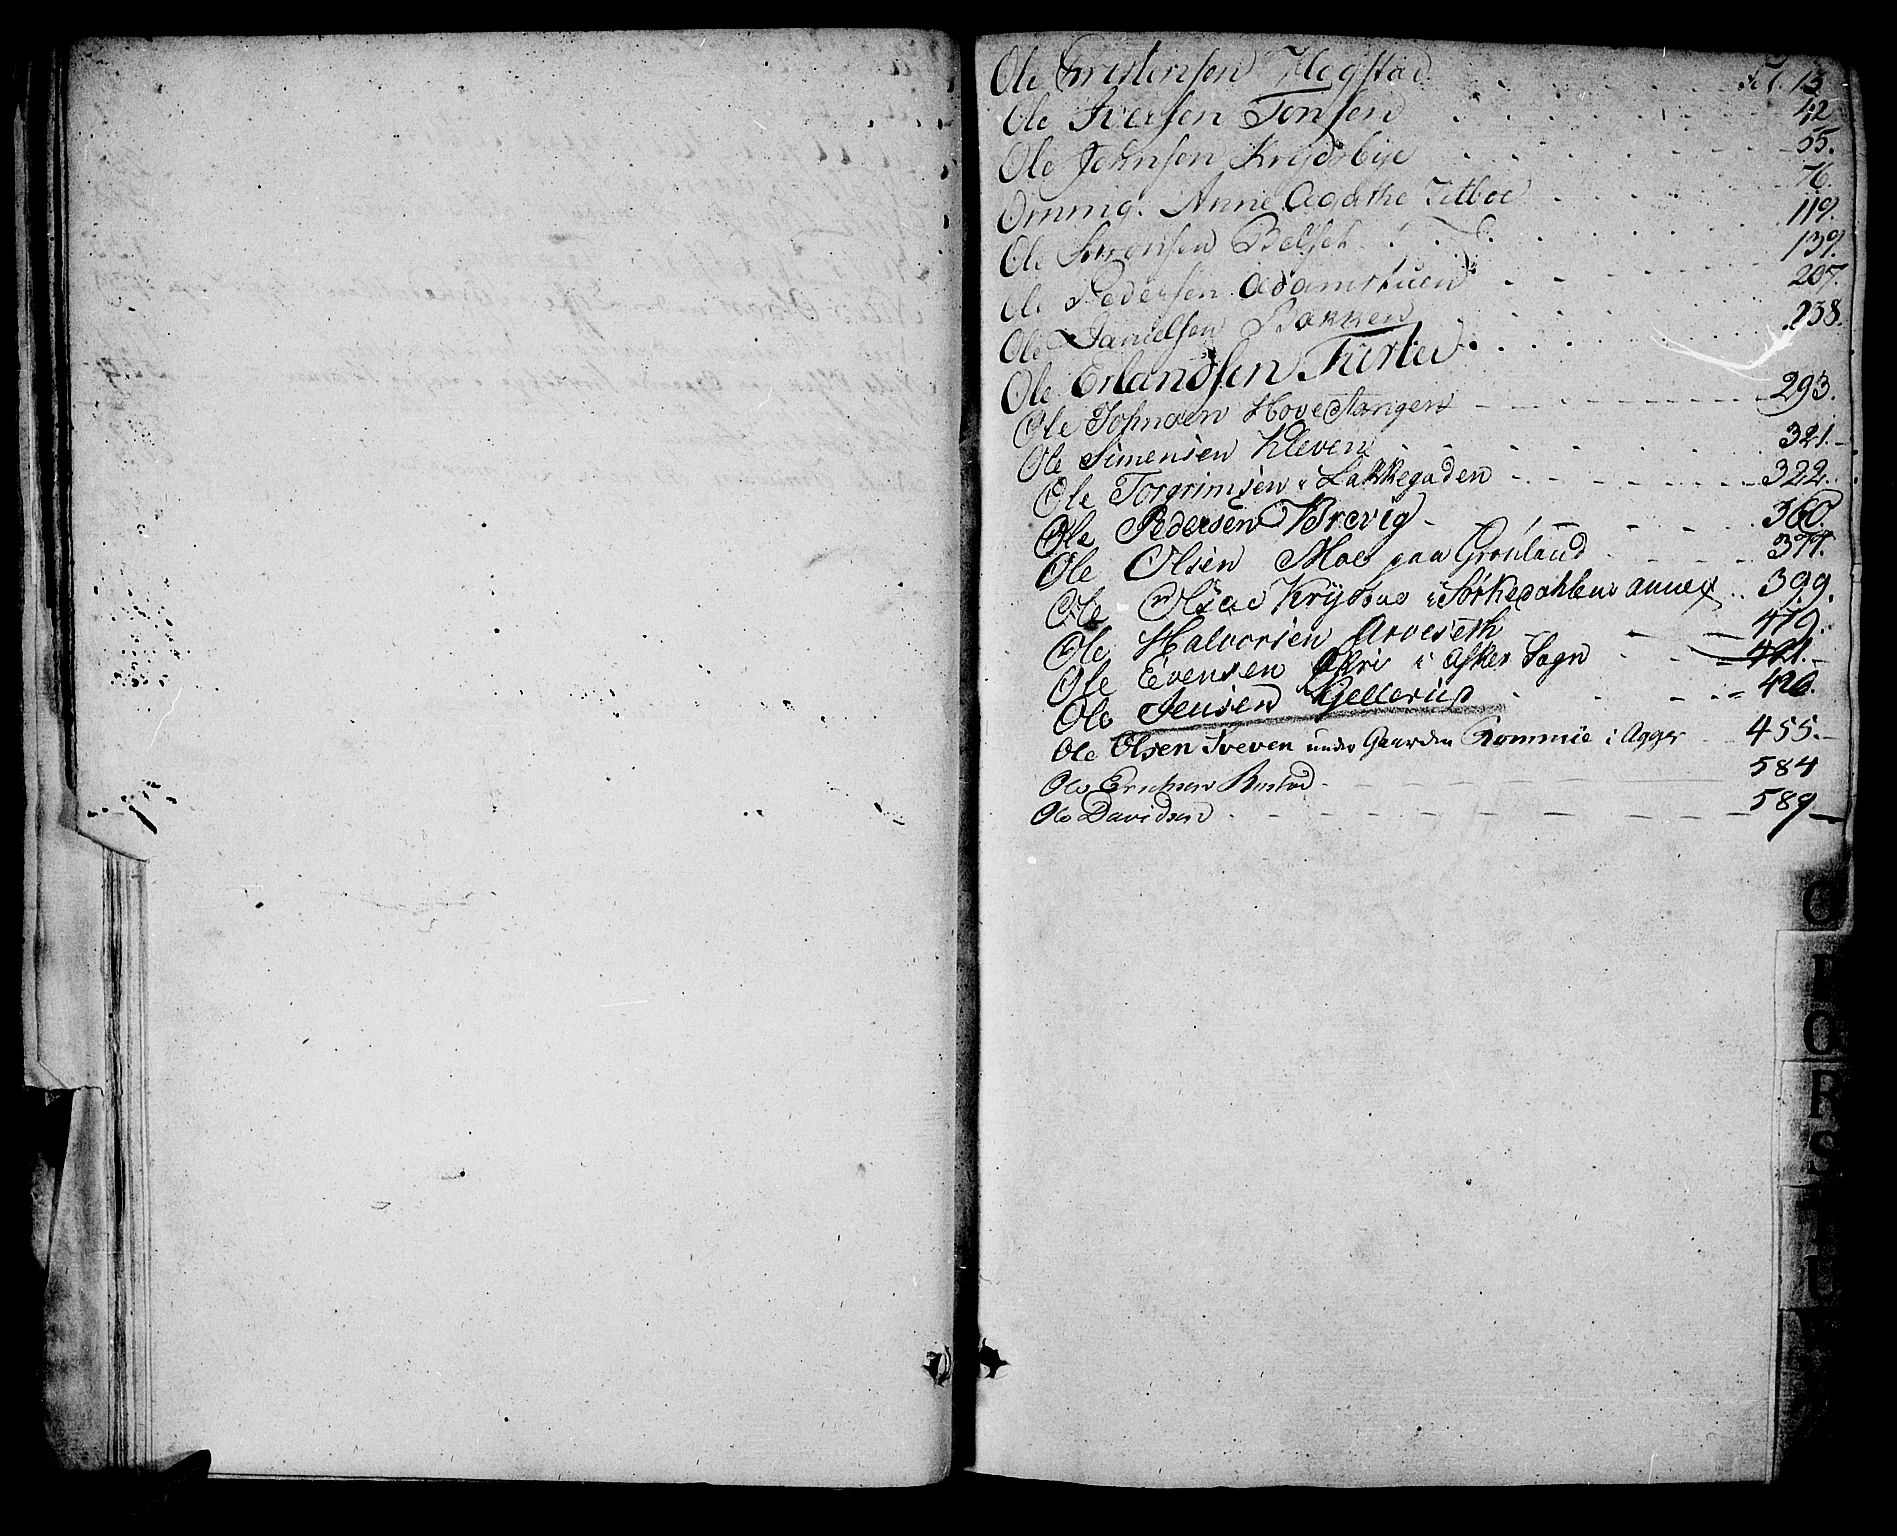 Ole Christensen Hegstad . . . . Fol. 13
Ole Iversen Tonsen . . . . 42
Ole Johnsen Krydsbye . . . . 55.
Ommig. Anne Agathe . . . . 76.
Ole Sørensen Belset . . . . 119.
Ole Pedersen Adamstuen . . . . 139.
Ole Danielsen Bakken . . . . 207.
Ole Erlandsen . . . . 238.
Ole Johnsen Hovestangen - - - - 293.
Ole Simensen Kleven . - - - 321.
Ole Torgrimsen i Lakkegaden - - - - 322.
Ole Pedersen Brevig - - - - 360.
Ole Olsen Moe paa Grønland - - - - 377.
Ole Olsen Krydsbye i Sørkedahlens annex . . 399.
Ole Halvorsen Arveseth - - 419.
Ole Evensen i Asker Sogn - - - 421.
Ole Jensen Gjellerud . - - - 426.
Ole Olsen Sveven under Gaarden Rommie i Agger - 455.
Ole Erichsen Rustad - - - - 584
Ole Davidsen - - - - 589
O
P
Q
R
S
T
U